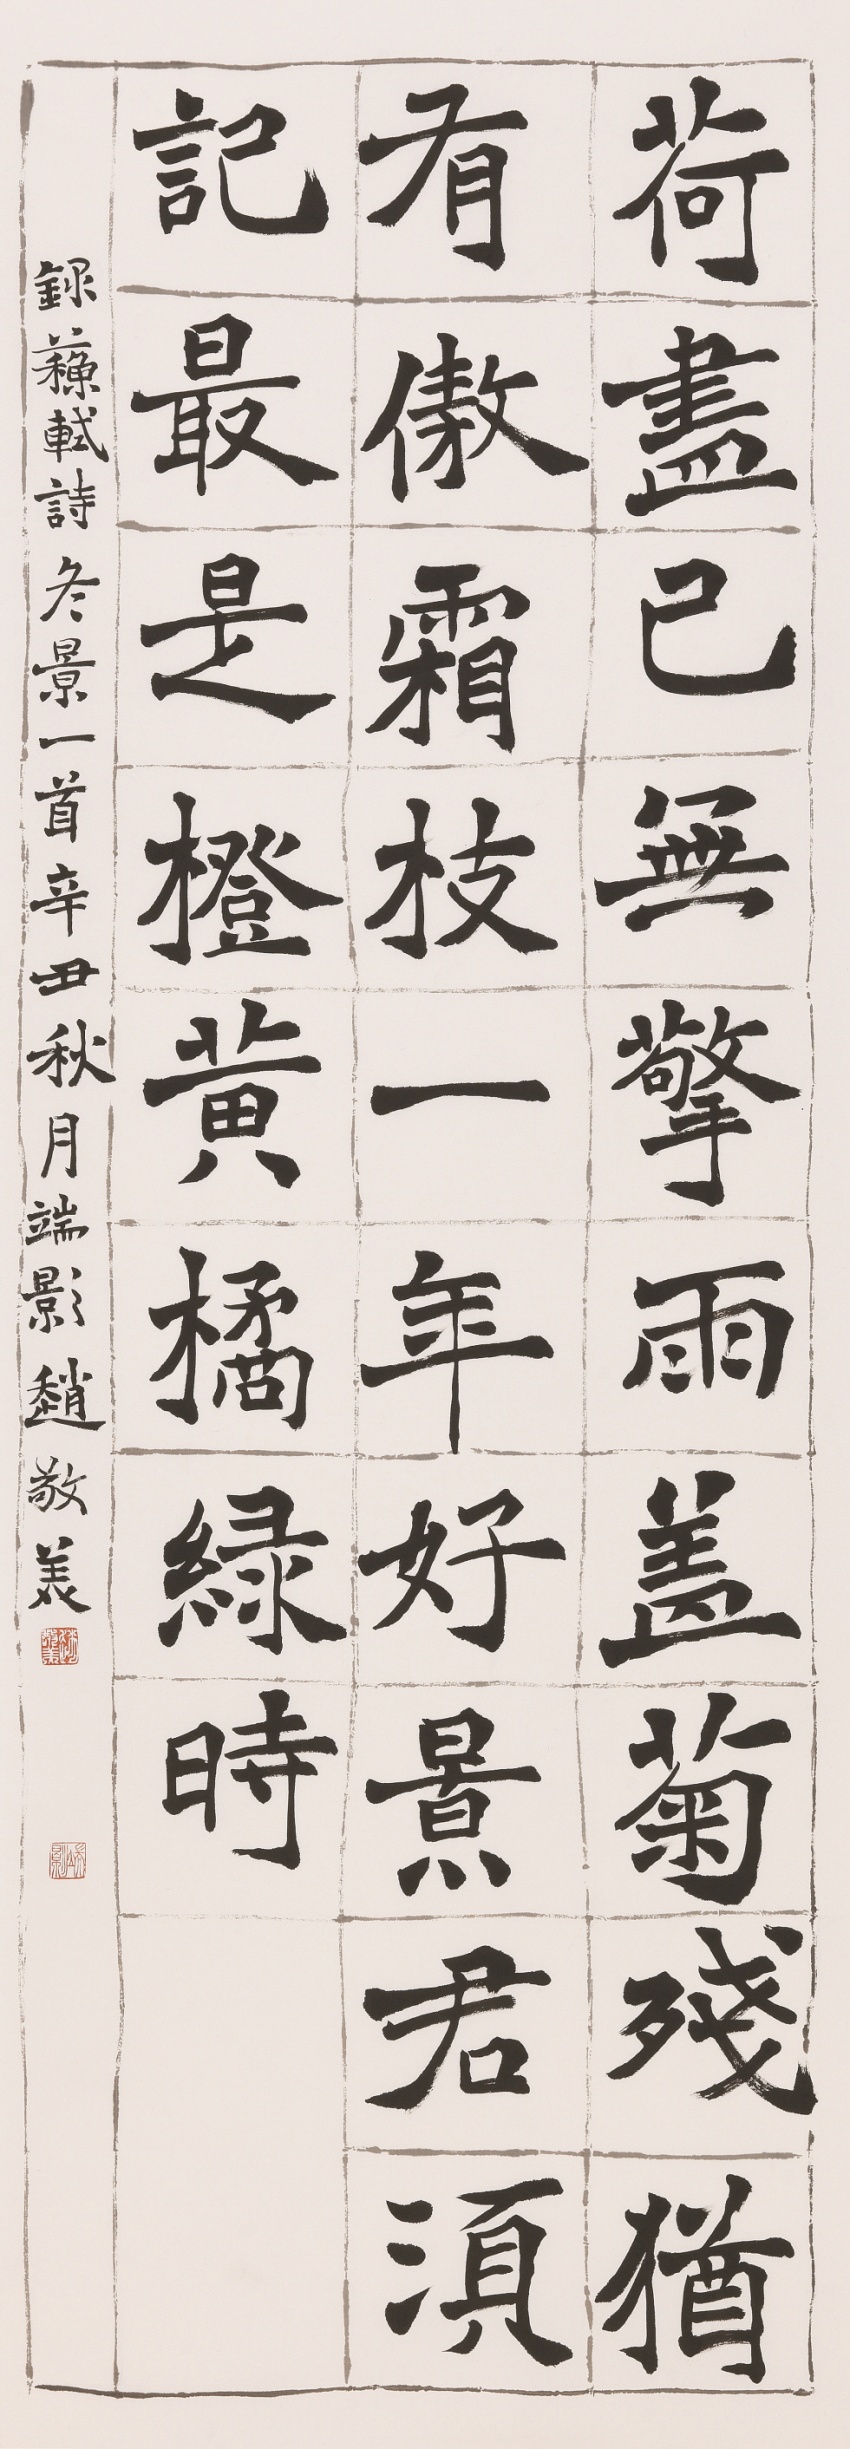 荷盡已無擎雨盖菊殘猶
有傲霜枝一年好景君須
記最是橙黄橘緑時
録蘇軾詩冬景一首辛丑秋月端影趙敬美